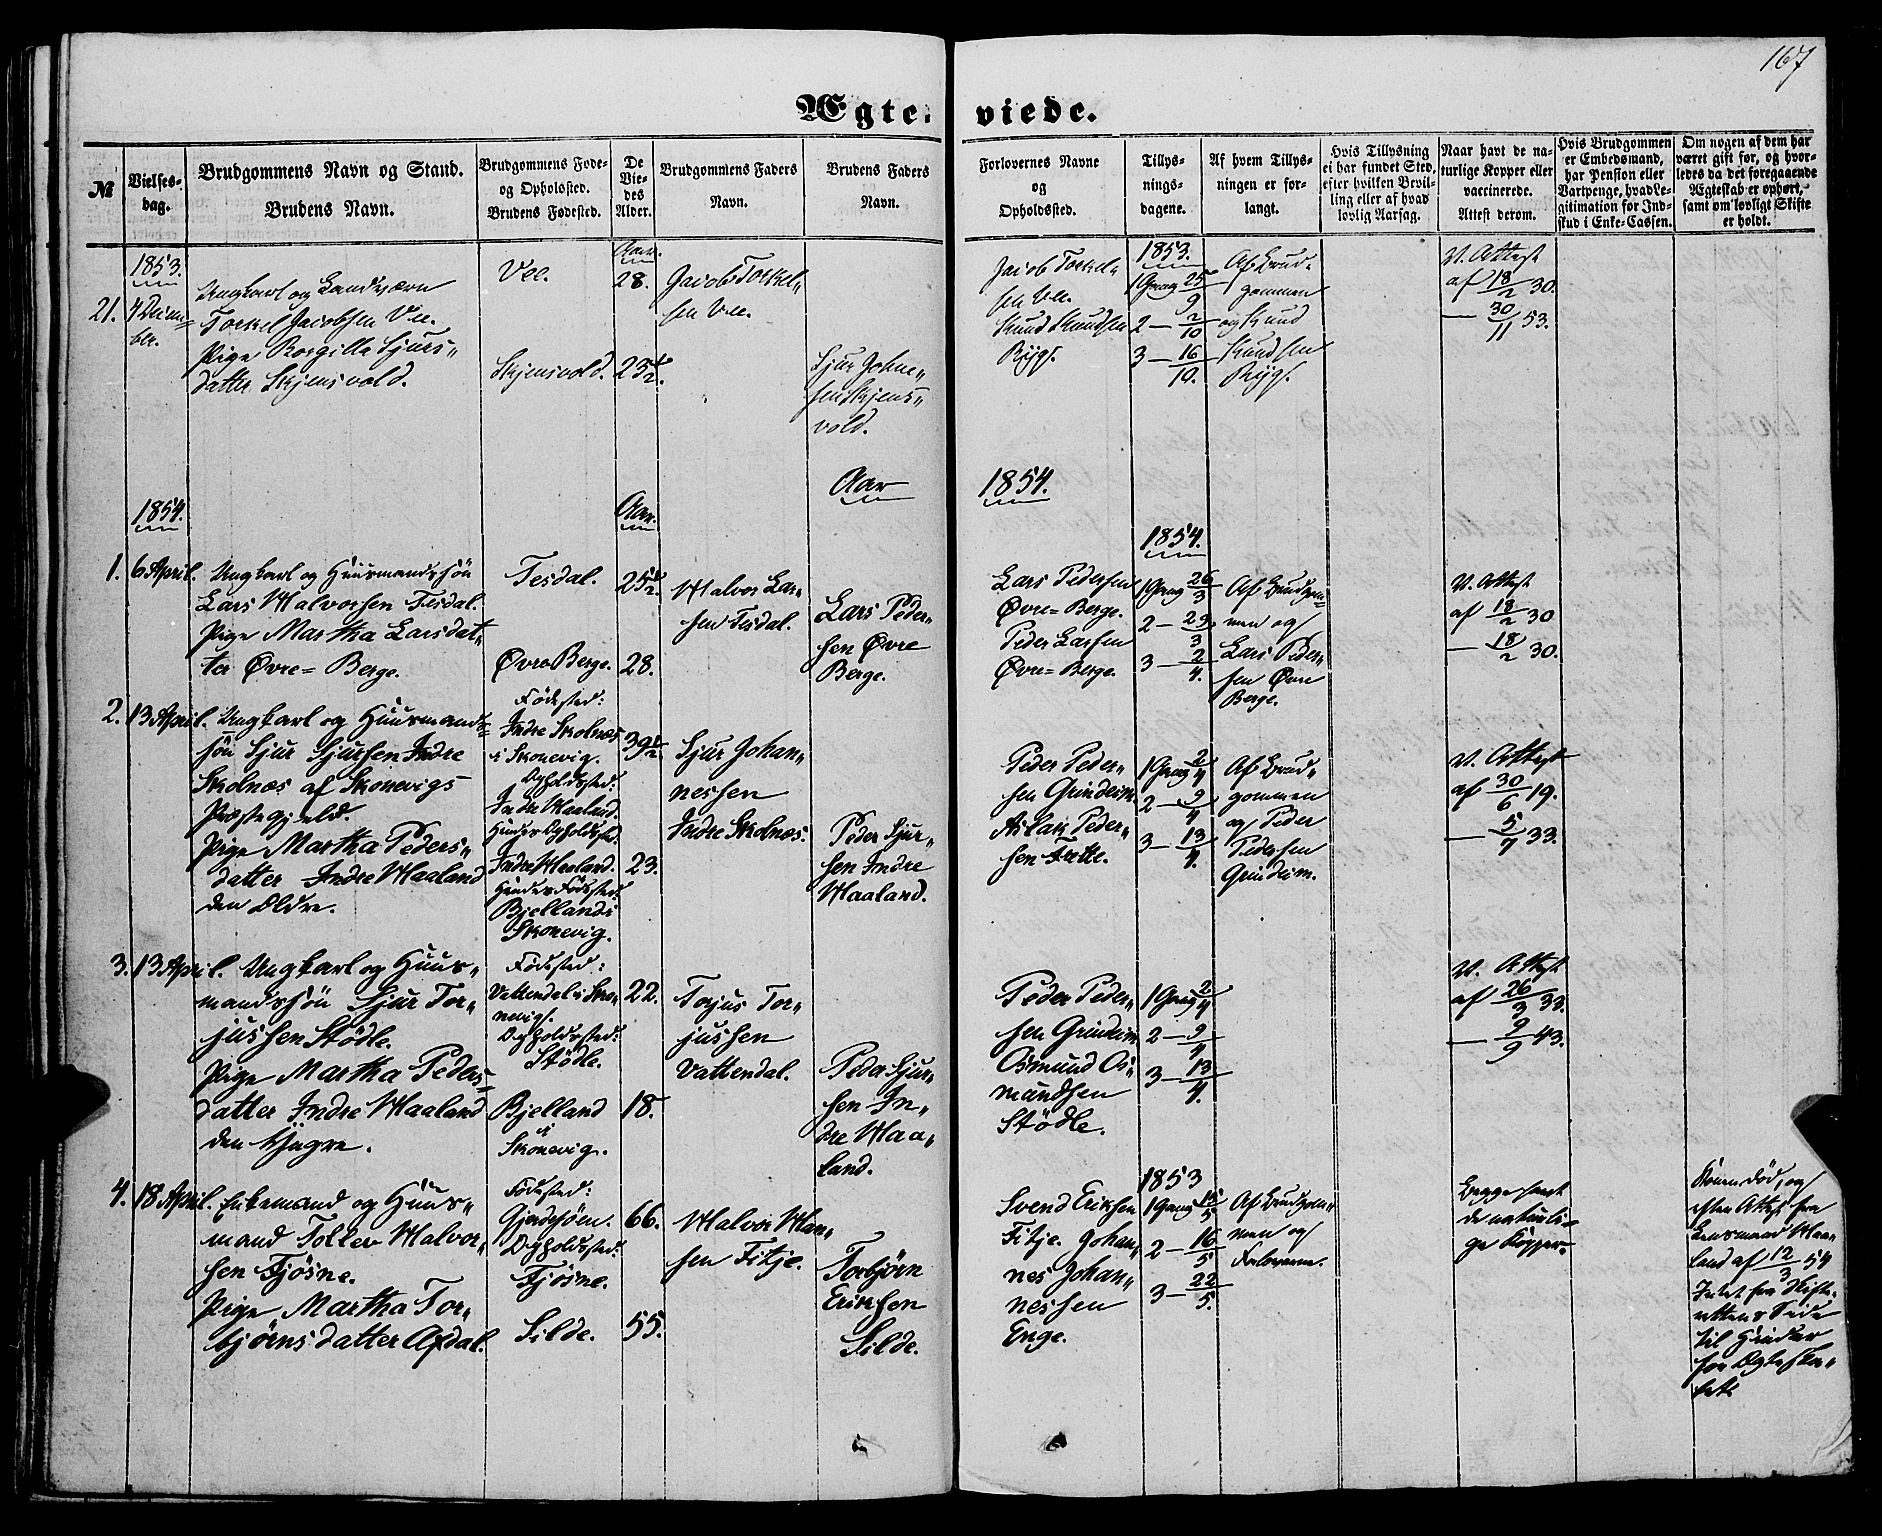 167
Ægteviede.
№
Vielses-
dag.
Brudgommens Navn og Stand.
Brudens Navn.
Brudgommens Føde-
og Opholdsted.
Brudens Fødested.
De
Vie-
des
Alder.
Brudgommens Faders
Navn.
Brudens Faders
Navn.
Forlovernes Navne
og
Opholdssted.
Tillys-
nings-
dagene.
Af hvem Tillys-
ningen er for-
langt.
Hvis Tillysning
ei har fundet Sted,
efter hvilken Bevil-
ling eller af hvad
lovlig Aarsag.
Naar havt de na-
turlige Kopper eller
vaccinerede.
Attest derom.
Hvis Brudgommen
er Embedsmand,
har Pension eller
Vartpenge, hvad Le-
gitimation for Ind-
skud i Enke-Cassen.
Om nogen af dem har
været gift før, og hvor-
ledes da det foregaaende
Ægteskab er ophørt,
samt om lovligt Skifte
er holdt.
1853.
21. 4 Decem-
ber.
Ungkarl og Landværn
Torkel Jacobsen Vee.
Pige Borgilla Sjurs-
datter Skjensvold.
Vee.
Skjensvold.
Aar.
28.
23½.
Jacob Torkel-
sen Vee.
Sjur Johne-
sen Skjens-
vold.
Jacob Torkel-
sen Vee.
Knud Knudsen
Rygg.
1853.
1 Gang 25/9
2 — 2/10
3 — 16/10.
Af Brud-
gommen
og Knud
Knudsen
Rygg.
V. Attest
af 18/2 30.
— 30/11 53.
Aar 1854.
1854.
Aar.
1854.
1. 6 April.
Ungkarl og Huusmandssøn
Lars Halvorsen Tesdal.
Pige Martha Larsdat-
ter Øvre=Berge.
Tesdal.
Øvre Berge.
25½.
28.
Halvor Lar-
sen Tesdal.
Lars Peder-
sen Øvre
Berge.
Lars Pedersen
Øvre=Berge.
Peder Larsen
Øvre=Berge.
1 Gang 26/3
2 — 29/3
3 — 2/4.
Af Brudgom-
men og
Lars Peder-
sen Øvre
Berge.
V. Attest
af 18/2 30
— 18/2 30.
2. 13 April.
Ungkarl og Huusmands-
søn Sjur Sjursen Indre
Skolnæs af Skonevigs
Præstegjeld.
Pige Martha Peders-
datter Indre Haaland
den Ældre.
Fødested:
Indre Skolnæs
i Skonevig.
Opholdssted:
Indre Haaland.
Hendes Opholdssted.
Indre Haaland.
Hendes Fødested:
Bjelland i
Skonevig.
39½.
23.
Sjur Johan-
nessen
Indre Skolnæs.
Peder Sjur-
sen Indre
Haaland.
Peder Peder-
sen Grindeim
Aslak Peder-
sen Frette.
1 Gang 2/4
2 — 9/4
3 — 13/4.
Af Brud-
gommen
og Peder
Pedersen
Grindeim.
V. Attest
af 30/6 19.
— 5/7 33.
3. 13 April.
Ungkarl og Huus-
mandssøn Sjur Tor-
jussen Stødle.
Pige Martha Peders-
datter Indre Haaland
den Yngre.
Fødested:
Vattendal i Sko-
nevig.
Opholdssted:
Stødle.
Bjelland
i
Skonevig.
22.
18.
Torjus Tor-
jussen
Vattendal.
Peder Sjur-
sen In-
dre Haa-
land.
Peder Peder-
sen Grindeim
Osmund Os-
mundsen
Stødle.
1 Gang 2/4
2 — 9/4
3 — 13/4.
V. Attest
af 26/3 33.
— 9/9 43.
4. 18 April.
Enkemand og Huus-
mand Tollev Halvor-
sen Fjøsne.
Pige Martha Tor-
bjørnsdatter Afdal.
Fødested:
Gjerdesøen.
Opholdssted:
Fjøsne.
Silde.
66.
55.
Halvor Han-
sen Fitje.
Torbjørn
Eriksen
Silde.
Svend Eriksen
Fitje. Johan-
nes Johan-
nessen
Enge.
1853
1 Gang 15/5
2 — 16/5
3 — 22/5.
Af Brudgom-
men og
Forloverne.
Begge havt
de naturli-
ge Kopper.
Konen død, og
efter Attest fra
Lensmand Haa-
land af 12/3 54
Intet fra Skifte-
rettens Side
til Hinder
for Ægteska-
bet.